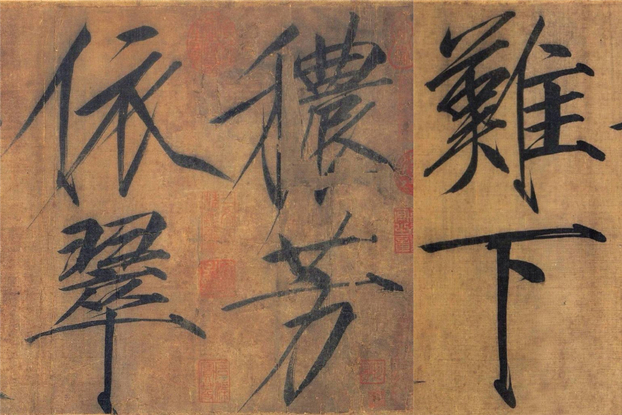 穠芳
依翠
難下